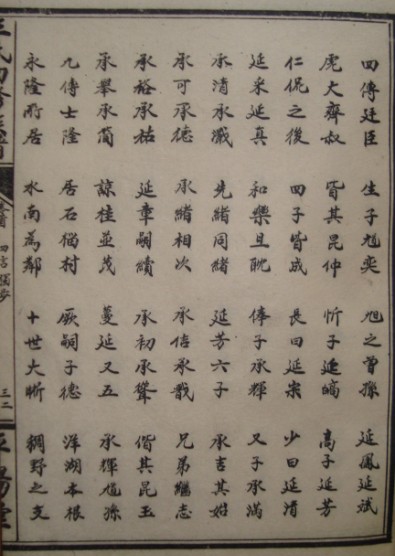 四傳廷臣 生子旭奕 旭之曾孫 延鳳延斌
虎大齊叔 皆其昆仲 忻子延嵩 高子延芳
仁侃之後 四子皆成 長曰延宗 少曰延清
延采延真 和樂且耽 俸子承輝 又子承滿
承清承瓚 先緒同緒 延芳六子 承吉其始
承可承德 承緒相次 承信承戩 兄弟繼志
承裕承祐 延章嗣續 承初承贊 偕其昆玉
承舉承簡 諒桂並茂 蔓延又五 承輝馗孫
九傳士隆 居石獅村 厥嗣子德 洋湖本根
永隆所居 水南為鄰 十世大昕 稠野之支
四言獨步
三二